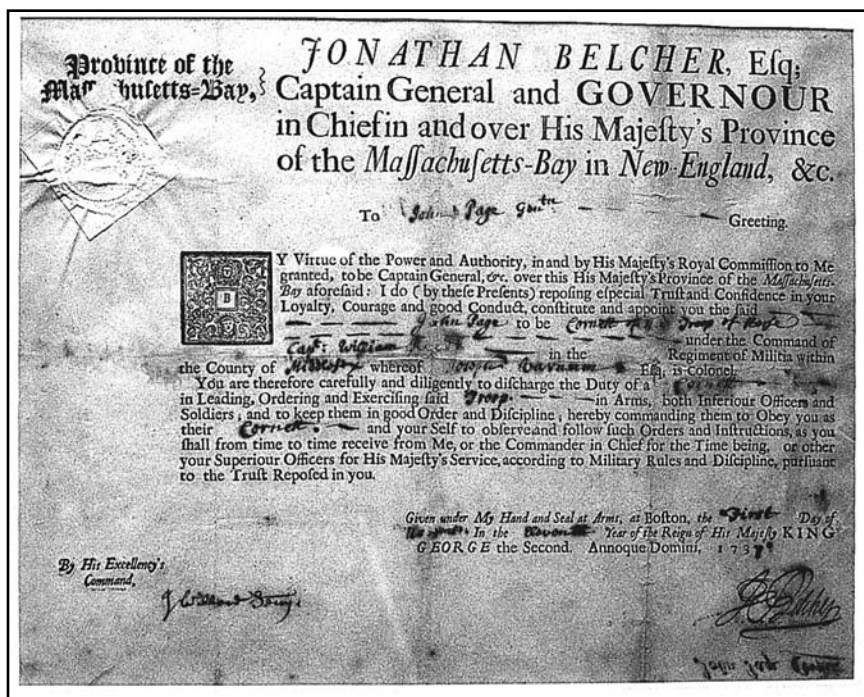 Province of the
Maſſ huſetts-Bay,
JONATHAN BELCHER, Eſq;
Captain General and GOVERNOUR
in Chief in and over His Majeſty's Province
of the Maſſachuſetts-Bay in New-England, &c.
To John Page Gentn Greeting.
BY Virtue of the Power and Authority, in and by His Majeſty's Royal Commiſſion to Me
granted, to be Captain General, &c. over this His Majeſty's Province of the Maſſachuſetts-
Bay aforeſaid: I do (by theſe Preſents) repoſing eſpecial Truſt and Confidence in your
Loyalty, Courage and good Conduct, conſtitute and appoint you the ſaid
John Page to be Cornett of Troop of Horſe
Capt: William under the Command of
in the Regiment of Militia within
the County of Middleſex whereof Varnum Eſq; is colonel.
You are therefore carefully and diligently to diſcharge the Duty of a Cornett
in Leading, Ordering and Exerciſing ſaid Troop in Arms, both Inferiour Officers and
Soldiers, and to keep them in good Order and Diſcipline, hereby commanding them to Obey you as
their Cornett. and your Self to obſerve and follow ſuch Orders and Inſtructions, as you
ſhall from time to time receive from Me, or the Commander in Chief for the Time being, or other
your Superiour Officers for His Majeſty's Service, according to Military Rules and Diſcipline, purſuant
to the Truſt Repoſed in you.
Given under My Hand and Seal at Arms, at Boſton, the Firſt Day of
In the Year of the Reign of His Majeſty KING
GEORGE the Second. Annoque Domini, 173
By His Excellency's
Command,
J Willard Secry.
J Belcher